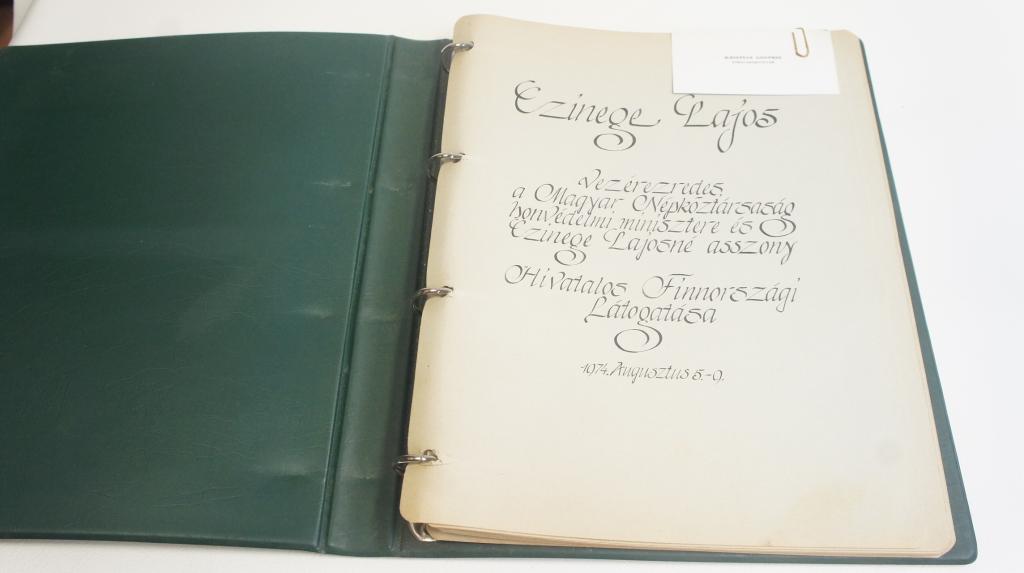 Czinege Lajos
vezérezredes,
a Magyar Népköztársaság
honvédelmi minisztere és
Czinege Lajosné asszony
Hivatalos Finnországi
Látogatása
1974. Augusztus 5.-9.